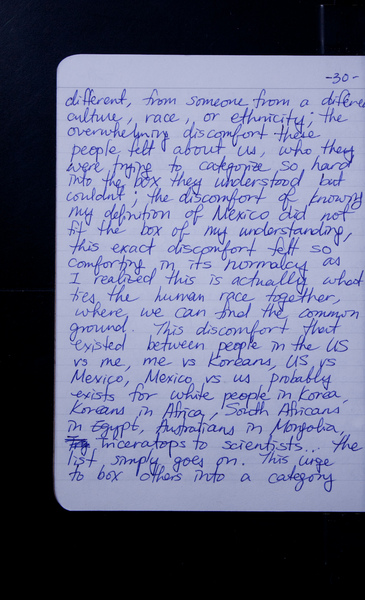 -30-
different, from someone from a differe
culture, race, or ethnicity; the
overwhelming discomfort these
people felt about us, who they
were trying to categorize so hard
into the box they understood but
couldnt; the discomfort of knowing
my definition of Mexico did not
fit the box of my understanding,
this exact discomfort felt so
comforting in its normalcy as
I realized this is actually what
ties the human race together,
where we can find the common
ground. This discomfort that
existed between people in the US
vs me, me vs Koreans, US vs
Mexico, Mexico vs us probably
exists for white people in Korea,
Koreans in Africa, South Africans
in Egypt, Australians in Mongolia,
Triceratops to scientists... The
list simply goes on. This urge
to box others into a category